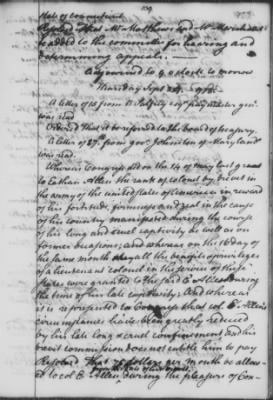 State of Connecticut
Resolved That Mr. Matthews and Mr.
be added to the committee for hearing and
determining appeals.
Adjourned to 9 o Clock to morrow
Thursday Sept 24. 1778.
A letter of 15 from
was read
Ordered That it be referred to the board of treasury.
A letter of from govr. Johnson of Maryland
was read.
Whereas Congress did on the 14 of May last grant
to Ethan Allen the rank of colonel by brevet in
the army of the united states of America in reward
of his fortitude, firmness and zeal in the cause
of his country manifested during the course
of his long and cruel captivity as well as on
former occasions; and whereas on the day of
the same month all the benefits & privileges
of a lieutenant colonel in the service of these
states were granted to the said E Allen during
the time of his late captivity: And whereas
it is represented to Congress that col E. Allen's
circumstances have been greatly reduced
by his late long & cruel confinement and his
brevet commission does not entitle him to pay
Resolved That 75 dollars per month be allow-
ed to col E. Allen during the pleasure of Con-